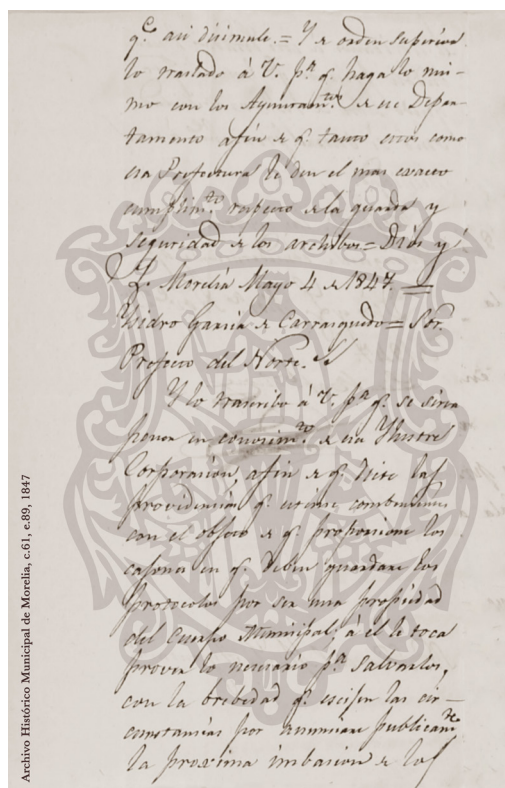 q.e asi disimule.= Y de orden superior
lo traslado á V. p.a q.e haga lo mis-
mo con los Ayuntam.tos de ese Depar-
tamento afin de q.e tanto estos como
esa Prefectura le den el mas exacto
cumplim.to respecto de la guarda y
seguridad de los archibos = Dios y
L. Morelia Mayo 4 de 1847. =
Ysidro Garcia de Carrasquedo = Sor.
Prefecto del Norte. "
Y lo transcribo á V. p.a q.e se sirva
poner en conosim.to de esa Ylustre
Corporasion, afin de q.e dicte las
providensias q.e estime combenientes
con el objeto de q.e proporsione los
cajones en q.e deben guardarse los
protocolos por ser una propiedad
del Cuerpo Munisipal, á él le toca
proveer lo nesesario p.a salvarlos,
con la brebedad q.e escijen las cir-
cunstansias por anunsiarse publicam.te
la proxima imbasion de los
Archivo Histórico Municipal de Morelia, c.61, e.89, 1847